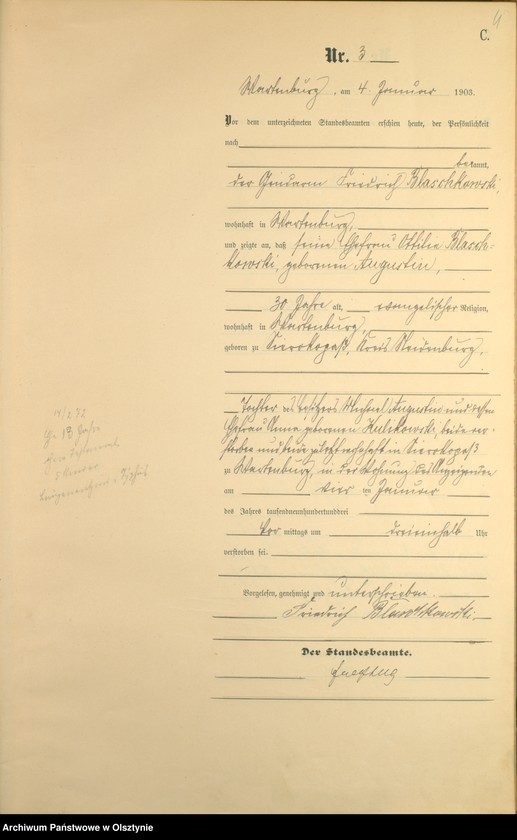 4
C.
Nr. 3
Wartenburg, am 4 Januar 1903.
Vor dem unterzeichneten Standesbeamten erschien heute, der Persönlichkeit
nach
bekannt,
der Gendarm Friedrich Blaschkowski,
wohnhaft in Wartenburg,
und zeigte an, daß seine Ehefrau Ottilie Blasch-
kowski, geborenen Augustin,
30 Jahre alt, evangelischer Religion,
wohnhaft in Wartenburg,
geboren zu Sierokopaß, Kreis Neidenburg,
Tochter des Besitzers Michael Augustin und dessen
Ehefrau Anna geborenen Kulikowski, beide ver-
storben und zuletzt wohnhaft in Sierokopaß
zu Wartenburg, in der Wohnung des Anzeigenden
am vier ten Januar
des Jahres tausendneunhundertunddrei
Vor mittags um dreieinhalb Uhr
verstorben sei.
Vorgelesen, genehmigt und unterschrieben.
Friedrich Blaschkowski
Der Standesbeamte.
18 Jahre
Archiwum Państwowe w Olsztynie